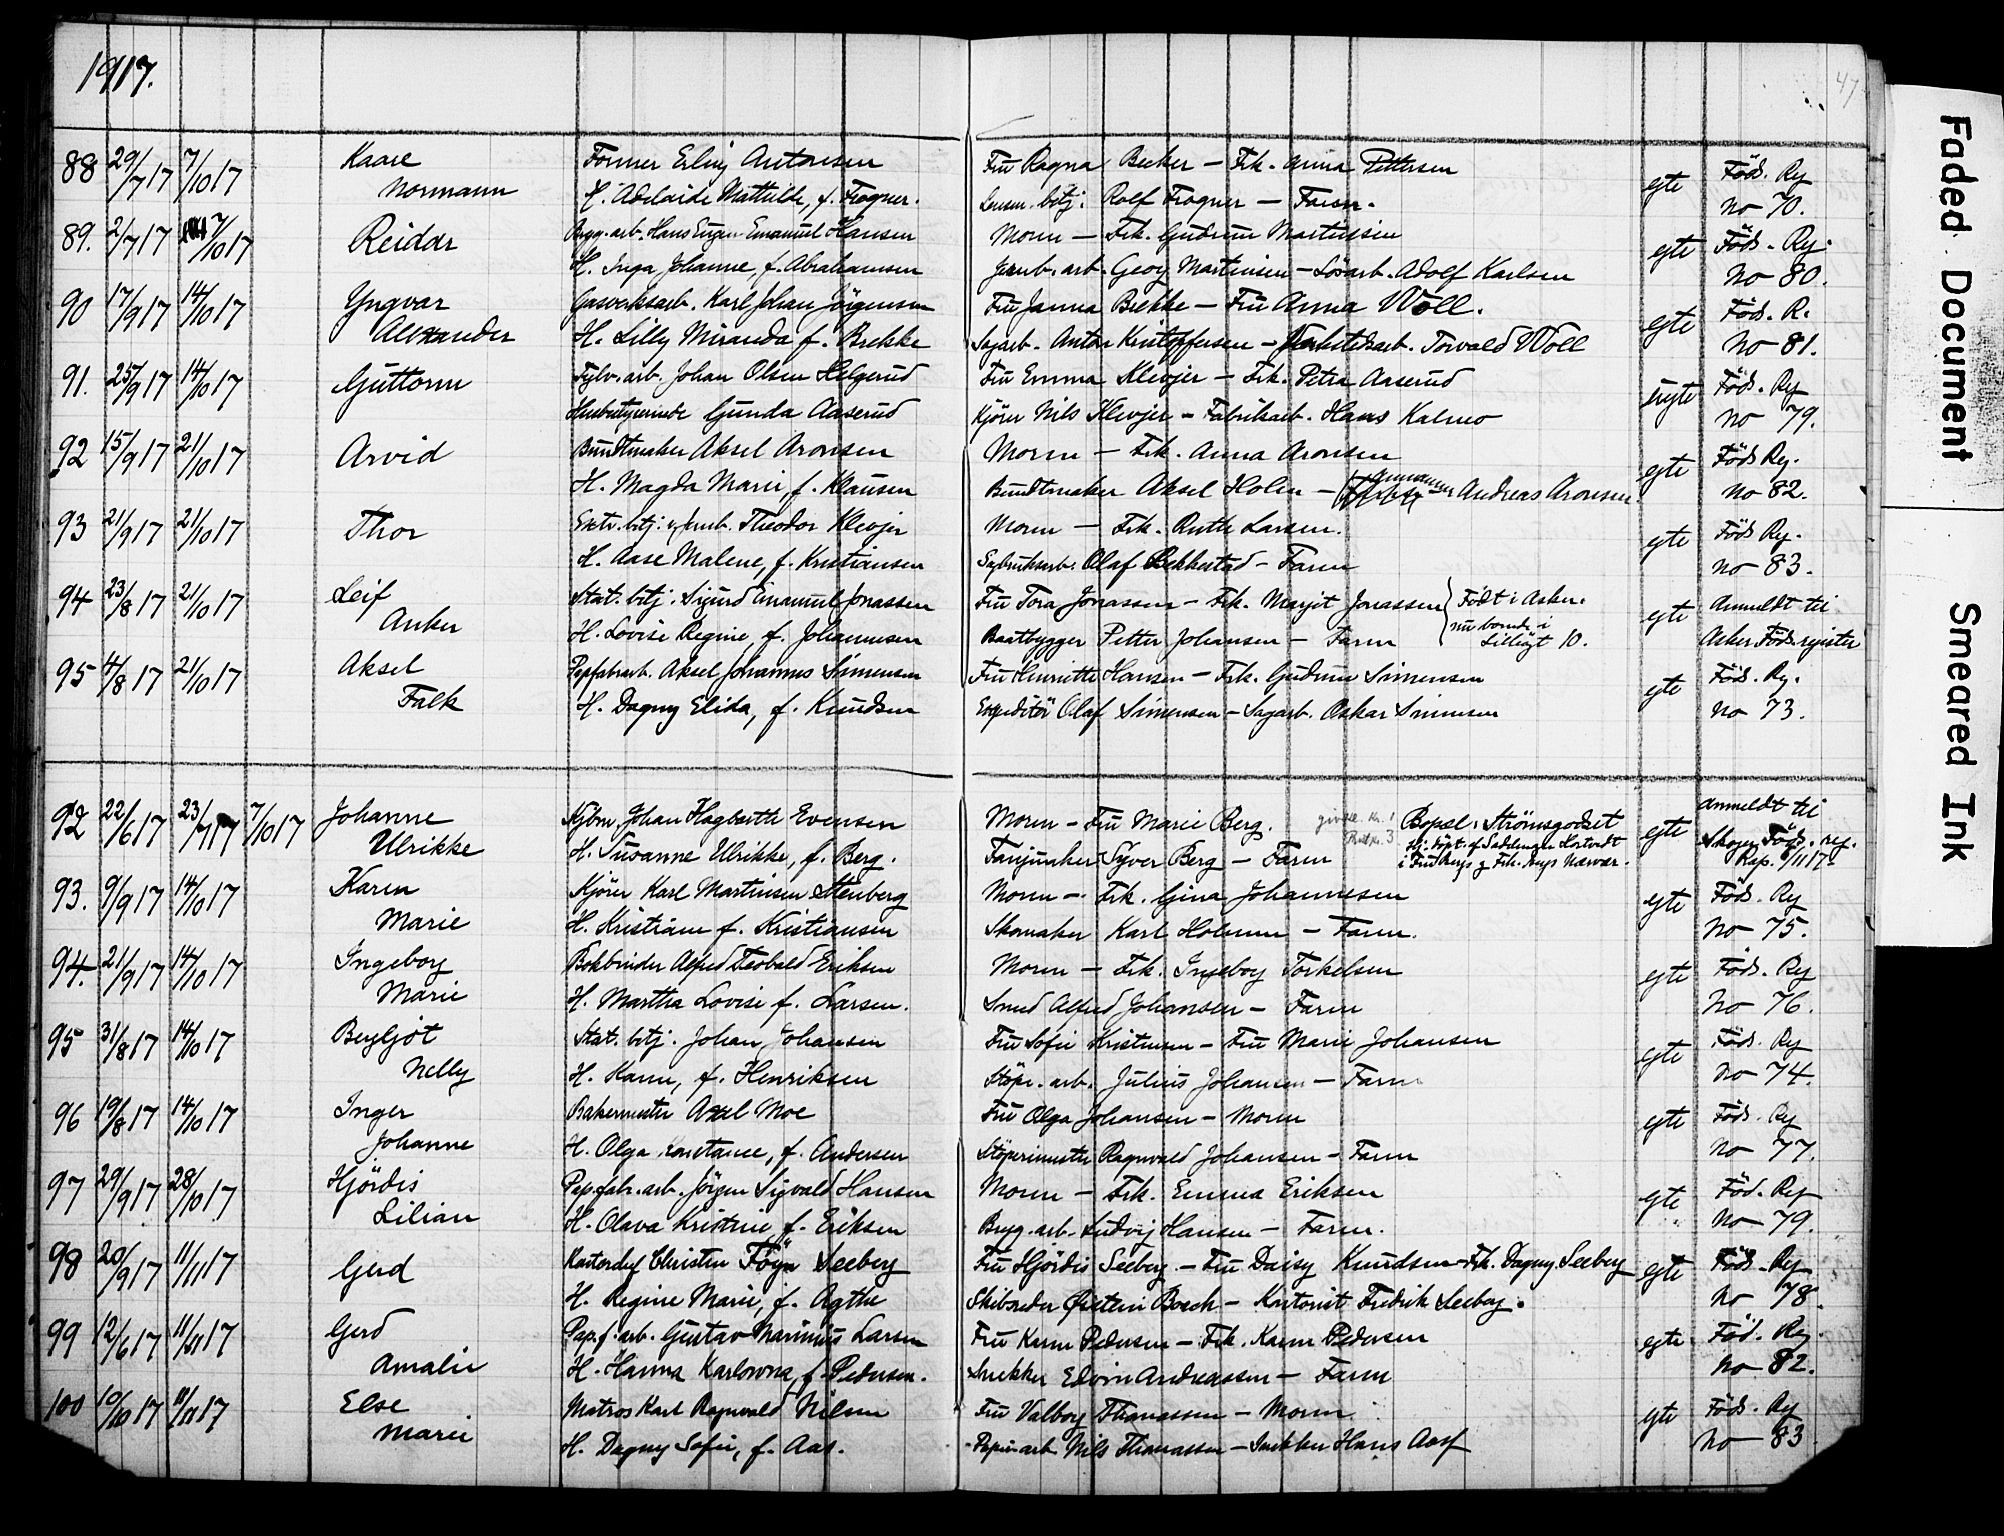 1917.
47
88 29/7 17 7/10 17 Kaare Former Erling Antonsen Fru Ragna Becker - Frk. Anna Pettersen egte Föds. Rg
Normann H. Adelaide Mathilde, f. Frogner. betj. Rolf Frogner - Faren. No 70.
89. 2/7 17 7/10 17 Reidar Brygg. arb. Hans Eugen Emanuel Hansen Moren - Frk. Gudrun Martinsen egte Föds. Rg.
H. Inga Johanne, f. Abrahamsen Jernb. arb. Georg Martinsen - Lösarb. Adolf Karlsen No 80.
90 17/9 17 14/10 17 Yngvar Gasverksarb. Karl Johan Jörgensen Fru Janna Brekke - Fru Anna Woll. egte Föds. R.
Alexander H. Lilly Miranda f. Brekke Sagarb. Anton Kristoffersen - Torvald Woll No 81.
91. 25/9 17 14/10 17 Guttorm Sylv. arb. Johan Olsen Helgerud Fru Emma Klevjer - Frk. Petra Aaserud uegte Föds. Rg
Husbestyrerinde Gunda Aaserud Kjörer Nils Klevjer - Fabrikarb. Hans Kalmo No 79.
92 15/9 17 21/10 17 Arvid Bundtmaker Aksel Aronsen Moren - Frk. Anna Aronsen egte Föds Rg.
H. Magda Marie, f. Klausen Bundtmaker Aksel Holm - Andreas Aronsen. No 82.
93 21/9 17 21/10 17 Thor Extr. betj. v. Jernb. Theodor Klevjer Moren - Frk. Ruth Larsen. egte Föds Rg.
H. Aase Malene, f. Kristiansen Sagbruksarb. Olaf Bekkestad - Faren No 83.
94 23/8 17 21/10 17 Leif Stat. betj. Sigurd Emanuel Jonassen Fru Tora Jonassen - Frk. Margit Jonassen Født i Asker. egte Anmeldt til
Anker H. Lovise Regine, f. Johannesen Baatbygger Petter Johansen - Faren nu boende i Lilleg̅t 10. Asker Föds. register
95 4/8 17 21/10 17 Aksel Papfabarb. Aksel Johannes Simensen Fru Henriette Hansen - Frk. Gudrun Simensen egte Föds. Rg.
Falk H. Dagny Elida, f. Knudsen Expeditör Olaf Simensen - Sagarb. Oskar Simensen No 73.
92 22/6 17 23/7 17 7/10 17 Johanne Kjbm. Johan Hagbarth Evensen Moren - Fru Marie Berg. Bopæl: Strömsgodset egte Anmeldt til
Ulrikke H. Susanne Ulrikke, f. Berg. Farijmaker Syver Berg - Faren Hj. döpt af i Fru Bergs og Frk. Bergs Nærvær. Skoger Föds. reg.
Rap. 9/11 17.
93. 9/9 17 14/10 17 Karen Kjörer Karl Martinsen Stenberg Moren - Frk. Gina Johannesen egte Föds. Rg
Marie H. Kristiane f. Kristiansen Skomaker Karl Holmen - Faren. No 75.
94. 21/9 17 14/10 17 Ingeborg Bokbinder Alfred Teobald Eriksen Moren - Frk. Ingeborg Torkelsen egte Föds. Rg
Marie H. Martha Lovise f. Larsen. Smed Alfred Johansen - Faren No 76.
95 31/8 17 14/10 17 Bergljot Stat. betj. Johan Johansen Fru Sofie Kristensen - Fru Marie Johansen egte Föds. Rg
Nelly H. Karen, f. Henriksen Stöpr. arb. Julius Johansen - Faren No 74.
96 19/8 17 14/10 17 Inger Bakermester Axel Moe Fru Olga Johansen - Moren egte Föds. Rg
Johanne H. Olga Konstance, f. Andersen Stöperimester Ragnvald Johansen - Faren No 77.
97 29/9 17 28/10 17 Hjördis Pap.fabr.arb. Jörgen Sigvald Hansen Moren - Frk. Emma Eriksen egte Föd. Reg
Lilian H. Olava Kristine f. Eriksen Brygg. arb. Ludvig Hansen - Faren. No 79.
98 20/9 17 11/11 17 Gerd Kontorchef Christen Föyn Seeberg Fru Hjördis Seeberg - Fru Daisy Knudsen - Frk. Dagny Seeberg egte Föds. Rg
H. Regine Marie, f. Agthe Skibsreder Øistein Bosch - Kontorist Fredrik Seeberg. No 78.
99 12/6 17 11/11 17 Gerd Pap.f.arb. Gustav Marinius Larsen Fru Karen Pedersen - Frk. Karen Pedersen egte Föd. Reg.
Amalie H. Hanna Karlowna, f. Pedersen. Snekker Edvin Andreassen - Faren No 82.
100 10/10 17 11/11 17 Else Matros Karl Ragnvald Nilsen Fru Valborg Thomassen - Moren. egte Föds. Rg
Marie H. Dagny Sofie, f. Aas. Papir.arb. Nils Thomassen - Snekker Hans Aas No 83
Faded Document
Smeared Ink